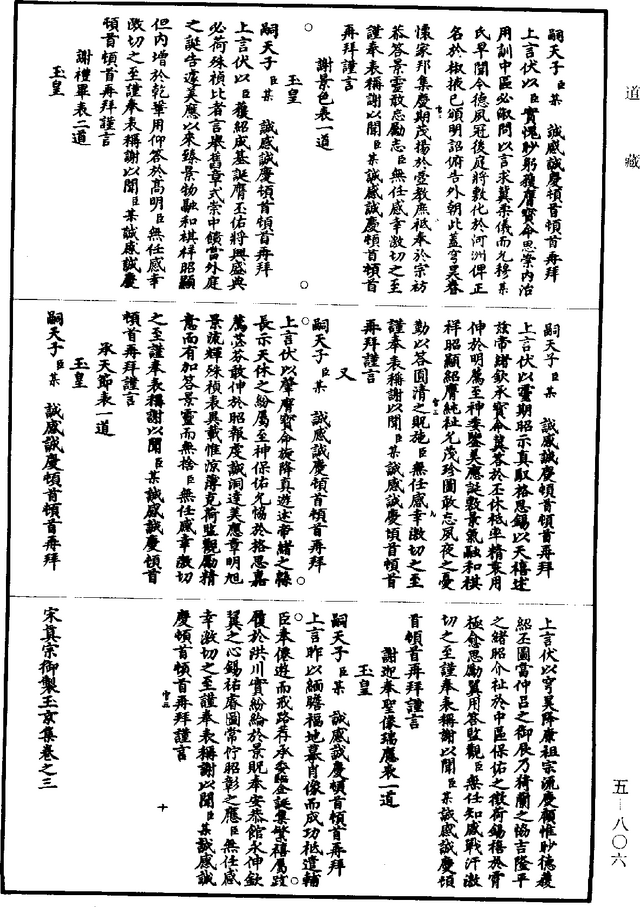 道藏
嗣天子臣某 誠感誠慶頓首頓首再拜
上言伏以臣實愧眇躬獲膺寶命思崇内治
用訓中區必徵問以言求冀柔儀而允穆某
氏早聞令德夙冠後庭將敷化於河洲俾正
名於椒掖已頒明詔俯告外朝此蓋穹昊眷
懷家邦集慶期茂揚於壼教庶祗奉於宗祊
恭答景靈敢忘勵志臣無任感幸激切之至
謹奉表稱謝以聞臣某誠感誠慶頓首頓首
再拜謹言
謝景色表一道
玉皇
嗣天子臣某 誠感誠慶頓首頓首再拜
上言伏以臣獲紹成基誕膺丕佑將興盛典
必荷殊禎比者言舉舊章式崇中饋當外庭
之誕告遽美應以來臻景物融和棋祥昭顯
但内增於乾華用仰答於高明臣無任感幸
激切之至謹奉表稱謝以聞臣某誠感誠慶
頓首頓首再拜謹言
謝禮畢表二道
玉皇
嗣天子臣某 誠感誠慶頓首頓首再拜
上言伏以靈期昭示真馭格思錫以天禧述
茲帝緒欽承寶命冀答於丕休祗率精衷用
伸於明薦至神委鑒美應誕敷景氣融和棋
祥昭顯紹膺純祉允茂珍圖敢忘夙夜之憂
勤以答圓清之貺施臣無任感幸激切之至
謹奉表稱謝以聞臣某誠感誠慶頓首頓首
再拜謹言
又
嗣天子臣某 誠感誠慶頓首頓首再拜
上言伏以肇膺寶命旋降真遊述帝緒之緜
長示天休之紛屬至神保佑允協於格思嘉
薦苾芬敢伸於昭報度誠洞達美應章明旭
景流輝殊禎表異載惟涼薄克荷監觀勵精
意而有加答景靈而無捨臣無任感幸激切
之至謹奉表稱謝以聞臣某誠感誠慶頓首
頓首再拜謹言
承天節表一道
玉皇
嗣天子臣某 誠感誠慶頓首頓首再拜
上言伏以穹昊降康祖宗流慶顧惟眇德獲
紹丕圖當仲呂之御辰乃猗蘭之協吉隆平
之緒昭介祉於中區保佑之徵荷錫禧於霄
極愈思勵翼用答監觀臣無任知感戰汗激
切之至謹奉表稱謝以聞臣某誠感誠慶頓
首頓首再拜謹言
謝迎奉聖像瑞應表一道
玉皇
嗣天子臣某 誠感誠慶頓首頓首再拜
上言昨以緬睠福地摹肖像而成功祗遣輔
臣奉僊遊而戒路荐承委鑒誕集繁禧屬跂
履於洪川實紛綸於景貺奉安恭館永伸欽
翼之心錫祐睿圖常佇昭彰之應臣無任感
幸激切之至謹奉表稱謝以聞臣某誠感誠
慶頓首頓首再拜謹言
宋真宗御製玉京集卷之三
五—八〇六